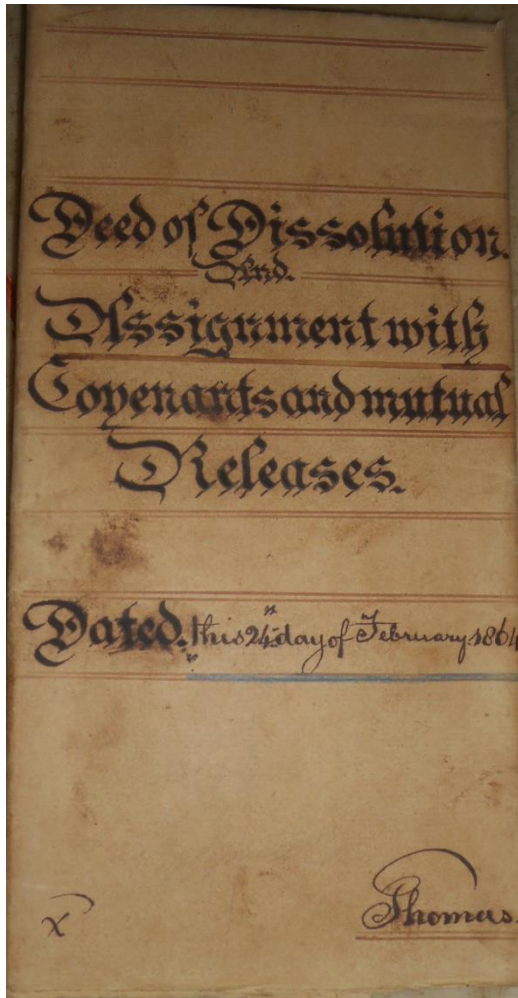 Deed of Dissolution.
And.
Assignment with
Covenants and mutual
Releases.
Dated. this 24" day of February 1864
x
Thomas.